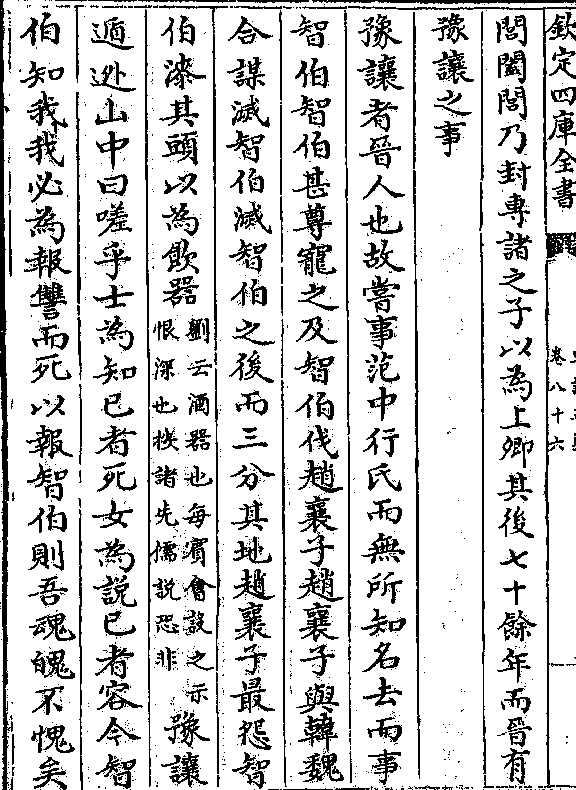 欽定四庫全書
卷八十六
閭闔閭乃封專諸之子以為上卿其後七十餘年而晉有
豫讓之事
豫讓者晉人也故嘗事范中行氏而無所知名去而事
智伯智伯甚尊寵之及智伯伐趙襄子趙襄子與韓魏
合謀滅智伯滅智伯之後而三分其地趙襄子最怨智
伯漆其頭以為飲器劉云酒器也每賓會設之示恨深也按諸先儒說恐非豫讓
遁逃山中曰嗟乎士為知已者死女為說已者容今智
伯知我我必為報讐而死以報智伯則吾魂魄不愧矣